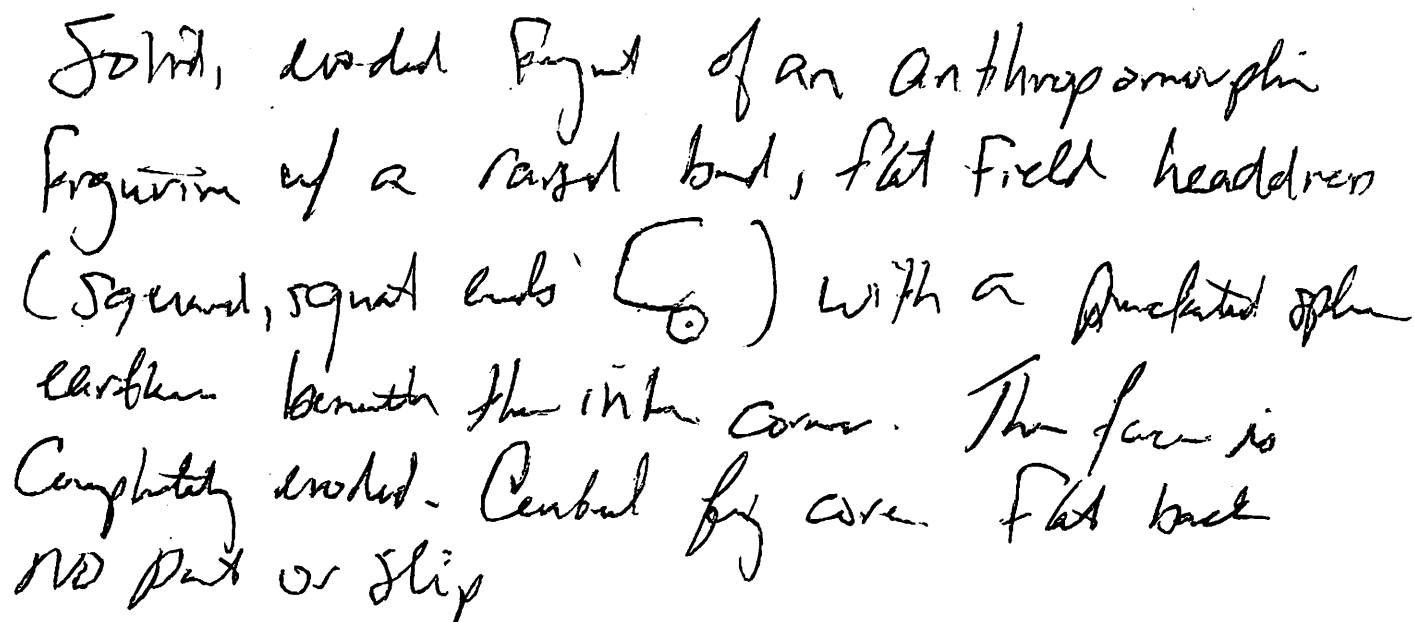 Solid, eroded fragment of an anthropomorphic
figurine w/ a raised band, flat field headdress
(squared, squat ends) with a punctated sphere
earflare beneath the inter corner. The face is
Completely eroded. Central fig core. Flat back
NO paint or slip